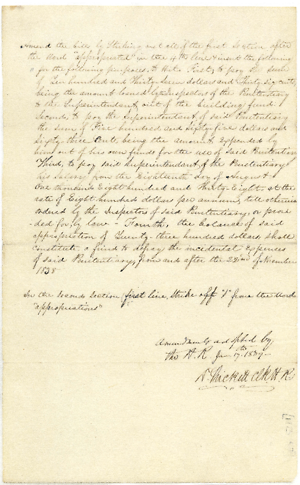 Amend the bill by Striking out all of the first Section after
the word "appropriated" in the 4th line & insert the following
for the following purposes, to wit: First, to pay the sum
of Ten hundred and thirty seven dollars and thirty six cents
being the amount loaned by Inspectors of the Penitentiary
to the Superintendent out of the building fund.
Second, to pay the Superintendent of said Penitentiary
the sum of Five hundred and sixty five dollars and
sixty three Cents being the amount expended by
him out of his own funds for the use of said Penitentiary
Third, to pay said Superintendent of the Penitentiary
his salary from the Eighteenth day of August
One thousand Eight hundred and Thirty Eight at the
rate of Eight hundred dollars per annum, till otherwise
ordered by the Inspectors of said Penitentiary or provi-
ded for by law. Fourth, the balance of said
appropriation of Twenty three hundred dollars shall
constitute a fund to defray the incidental expenses
of said Penitentiary, from and after the 22nd of November
1838
In the Second Section first line, Strike off "s" from the word
"appropriations"
Amendments adopted by
the H. R. Jan 17th 1839
Clk H. R.